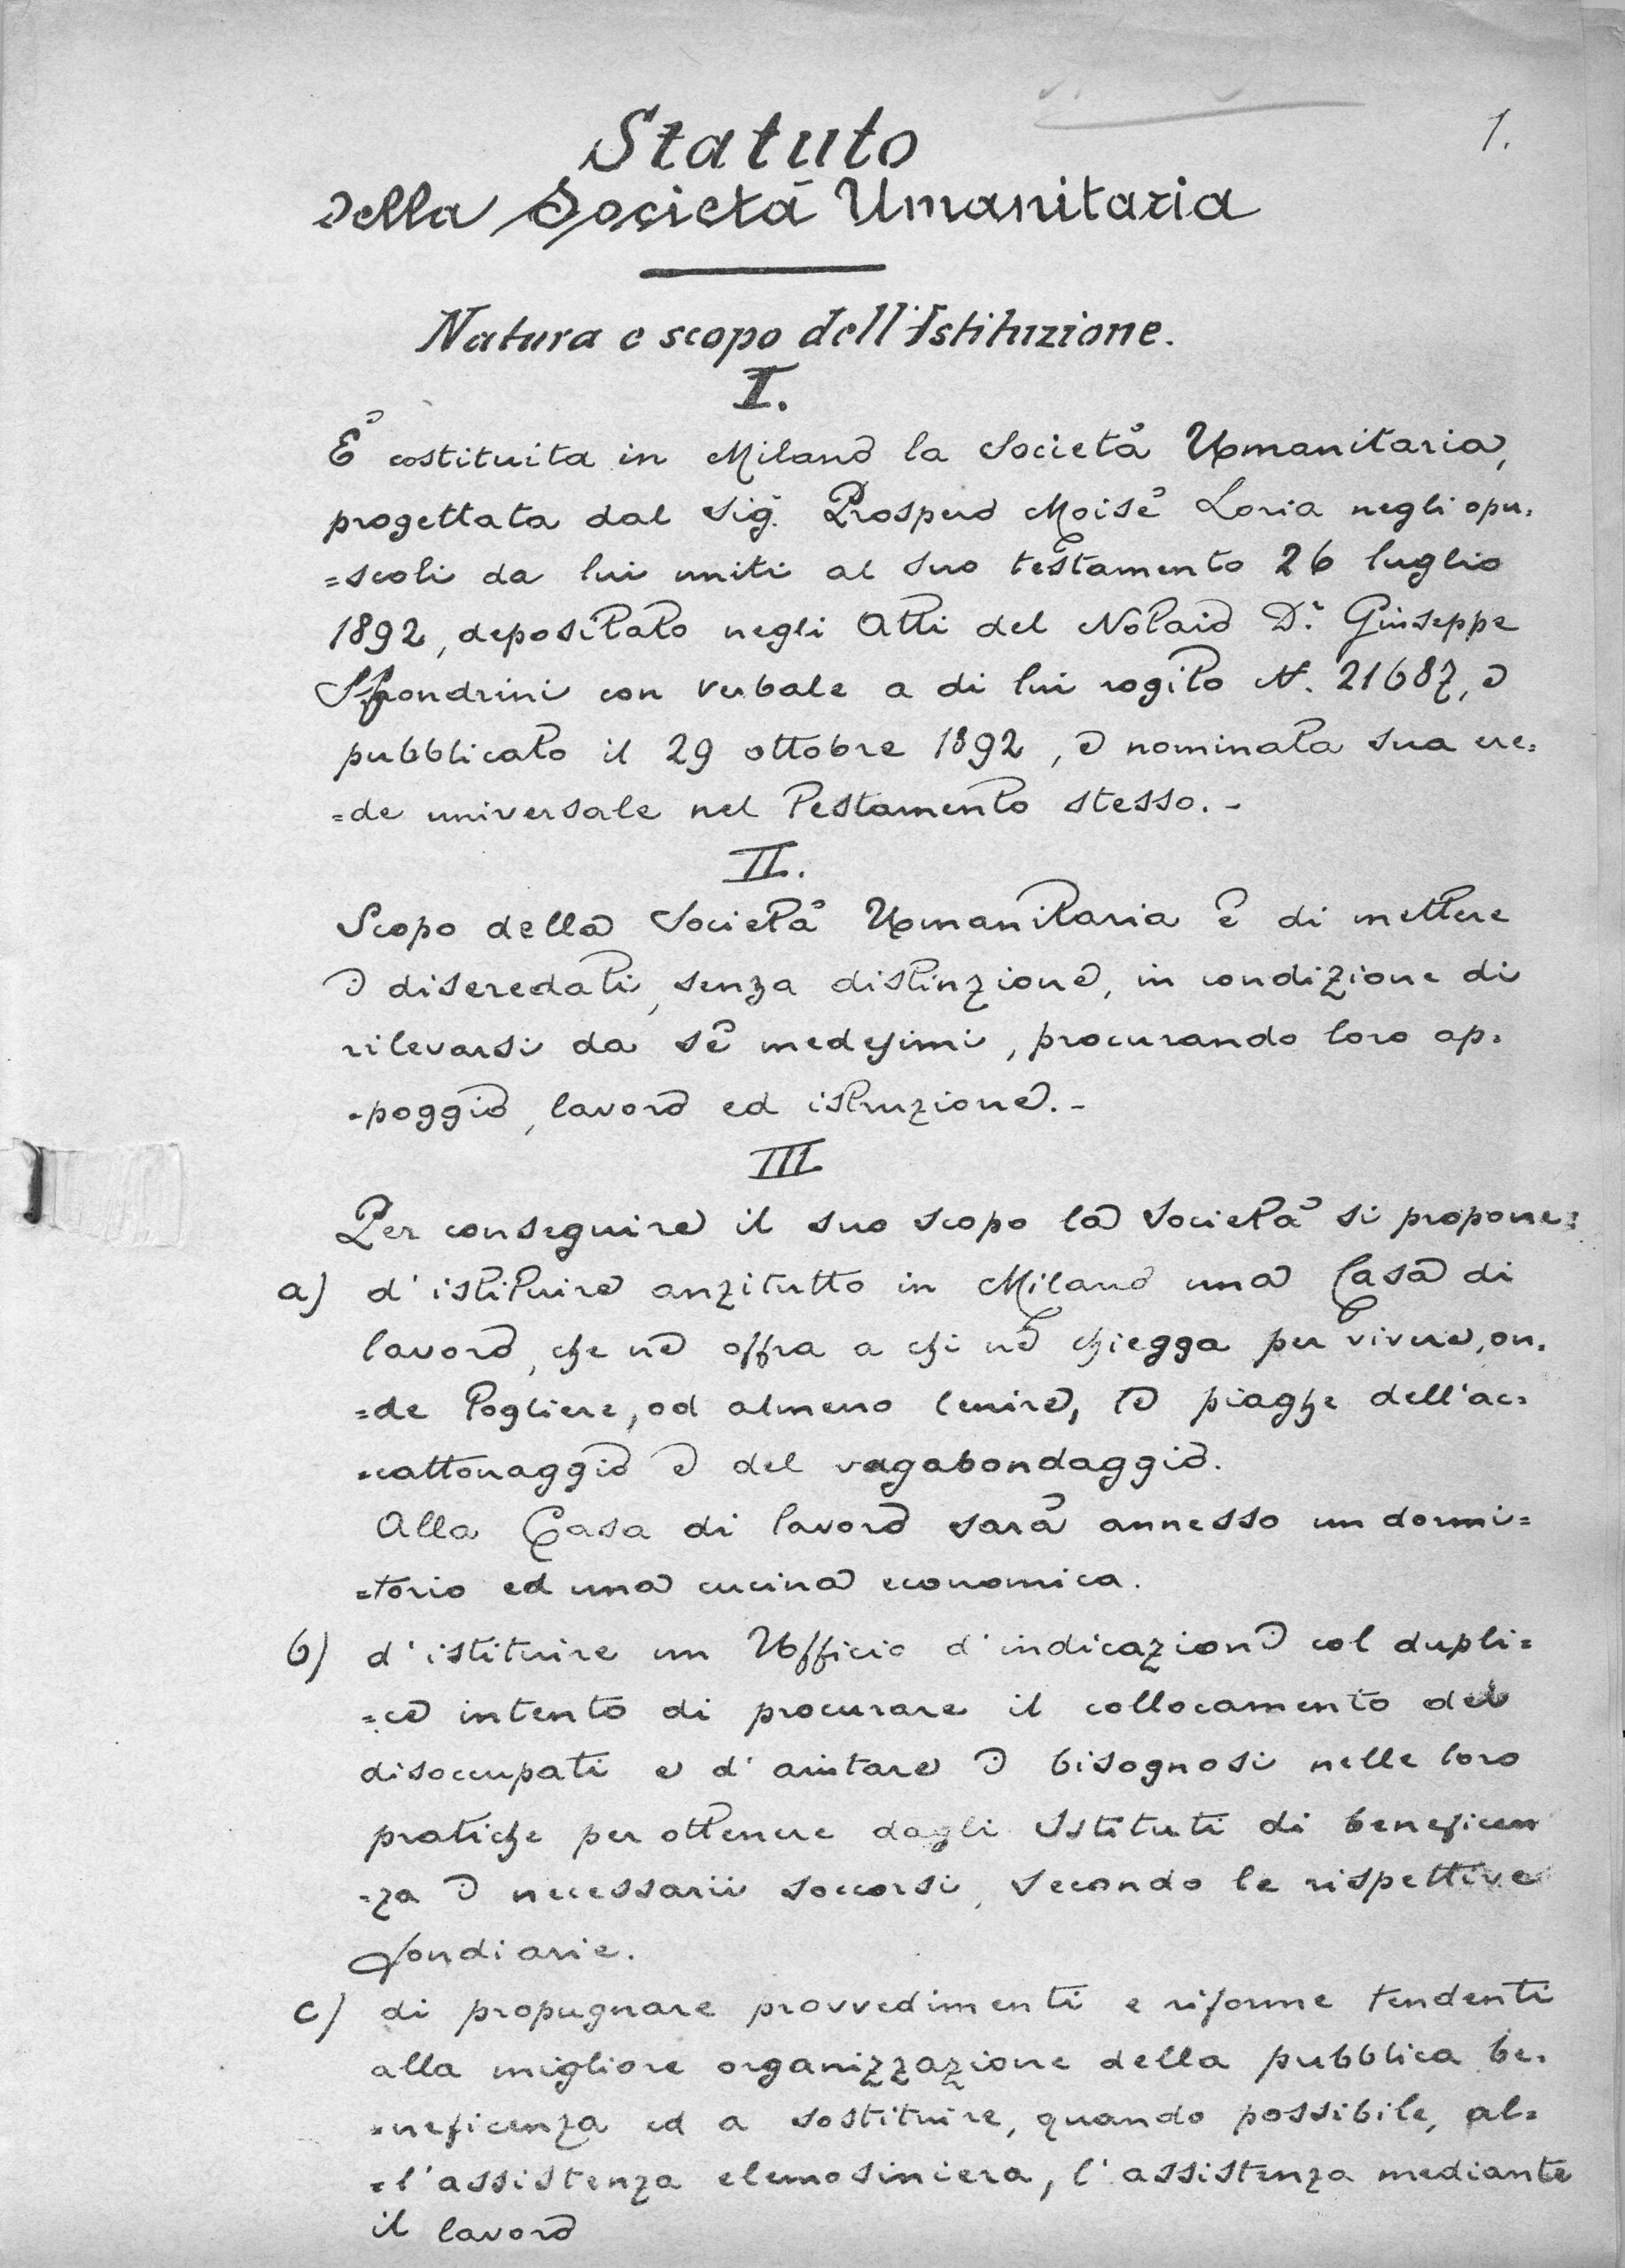 1.
Statuto
della Società Umanitaria
Natura e scopo dell'Istituzione.
I.
È costituita in Milano la Società Umanitaria,
progettata dal Sig. Prospero Moisè Loria negli opu=
=scoli da lui uniti al suo testamento 26 luglio
1892, depositato negli Atti del Notaio Dr. Giuseppe
con verbale a di lui rogito N. 21687, e
pubblicato il 29 ottobre 1892, e nominata sua ere=
=de universale nel testamento stesso. -
II.
Scopo della Società Umanitaria è di mettere
i diseredati, senza distinzione, in condizione di
rilevarsi da sè medesimi, procurando loro ap=
=poggio, lavoro ed istruzione. -
III
Per conseguire il suo scopo la Società si propone:
a) d'istituire anzitutto in Milano una Casa di
lavoro, che ne offra a chi ne chiegga per vivere, on=
=de togliere, od almeno lenire, le piaghe dell'ac=
=cattonaggio e del vagabondaggio.
Alla Casa di lavoro sarà annesso un dormi=
=torio ed una cucina economica.
b) d'istituire un Ufficio d'indicazioni col dupli=
=ce intento di procurare il collocamento dei
disoccupati e d'aiutare i bisognosi nelle loro
pratiche per ottenere dagli Istituti di beneficen
=za i necessarii soccorsi, secondo le rispettive
fondiarie.
c) di propugnare provvedimenti e riforme tendenti
alla migliore organizzazione della pubblica be=
=neficenza ed a sostituire, quando possibile, al=
=l'assistenza elemosiniera, l'assistenza mediante
il lavoro